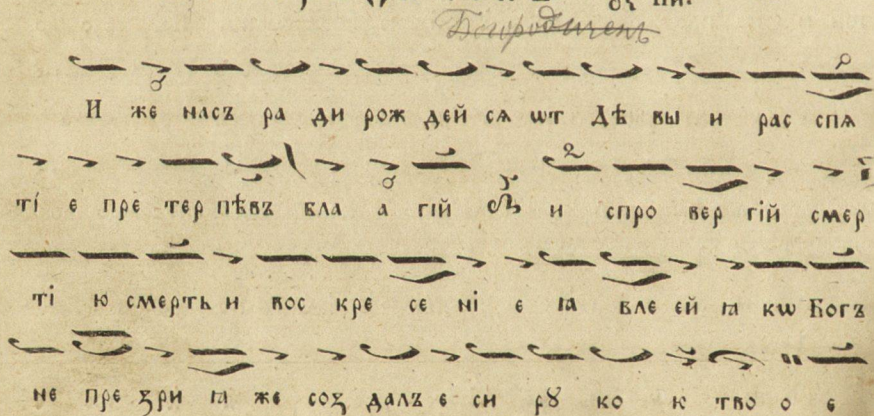 Богородиченъ
И же насъ ра ди рож дей сѧ ѡт Дѣ вы и рас спѧ
ті е пре тер пѣвъ бла а гій и спро вер гій смер
ті ю смерть и вос кре се ні е ꙗ вле ей ꙗ кѡ Богъ
не пре зри ꙗ же соз далъ е си рꙋ ко ю тво о е